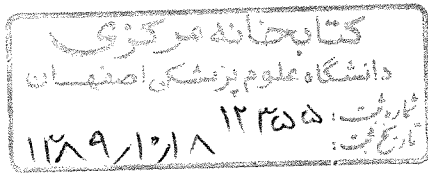 کتابخانه مرکزی
دانشگاه علوم پزشکی اصفهان
شماره ثبت: ۱۲۳۵۵
تاریخ ثبت: ۱۳۸۹/۱۰/۱۸